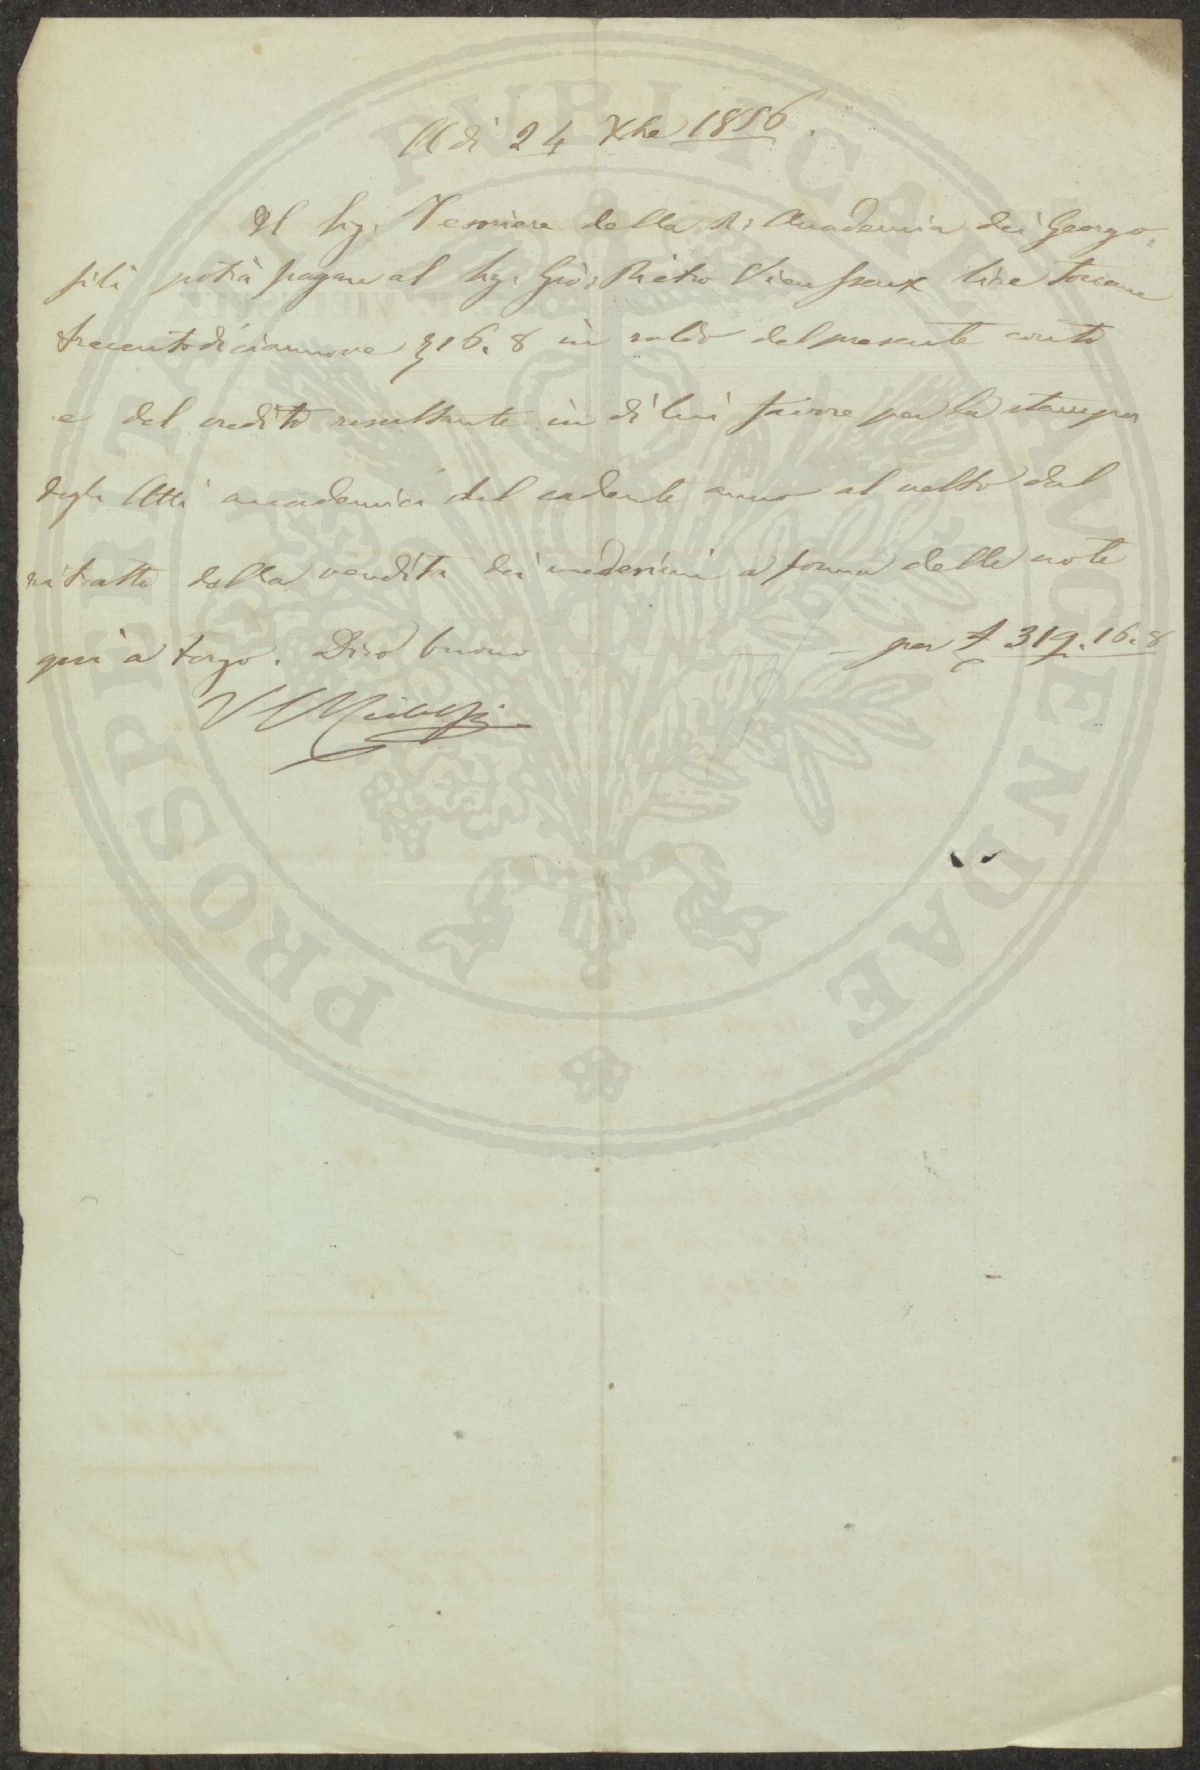 A di 24 Xbre 1856.
Il Sig. Tesoriere della R. Accademia dei Georgo-
fili potrà pagare al Sig. Gio: Pietro Vieusseux lire toscane
trecentodiciannove 16. 8 in saldo del presente conto
e del credito resultante in di lui favore per la stampa
degli Atti accademici del cadente anno al netto dal
ritratto della vendita dei medesimi a forma delle note
qui a tergo. Dico buono — per £ 319. 16. 8
PROSPERITATI PUBLICAE AUGENDAE